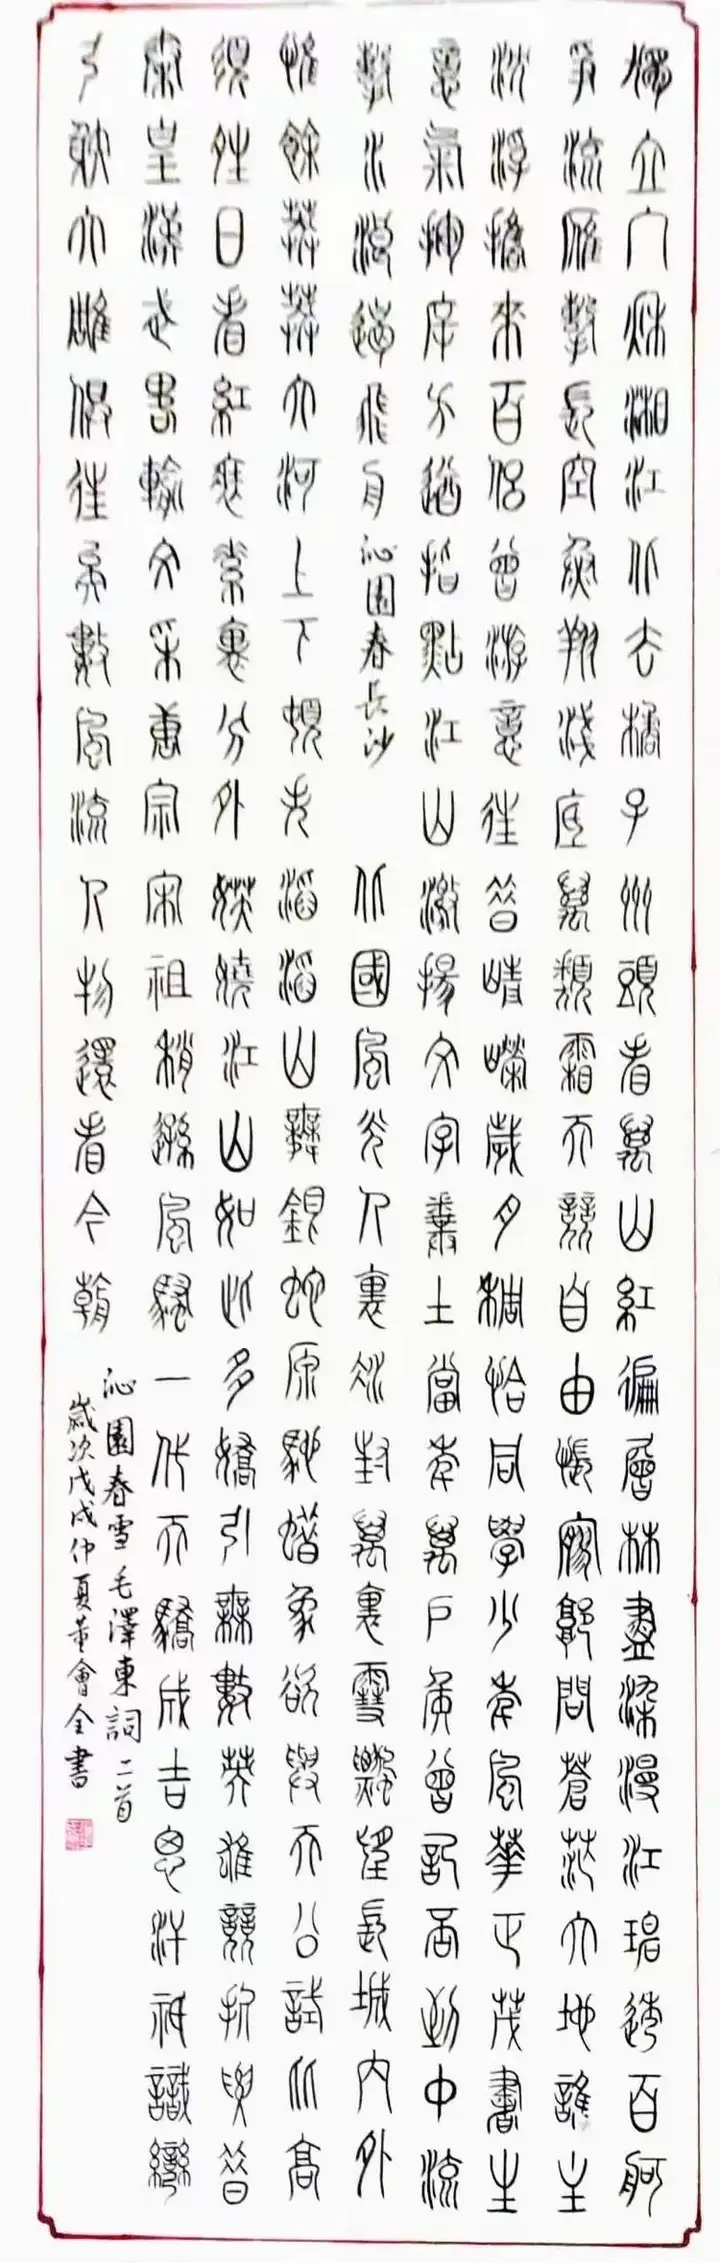 獨立寒秋湘江北去橘子州頭看萬山紅徧層林盡染漫江碧透百舸
爭流鷹擊長空魚翔淺底萬類霜天競自由悵寥廓問蒼茫大地誰主
沈浮攜來百侶曾游憶往昔崢嶸歲月稠恰同學少年風華正茂書生
意氣揮斥方遒指點江山激揚文字糞土當年萬戶侯曾記否到中流
擊水浪遏飛舟 沁園春長沙 北國風光千裏冰封萬裏雪飄望長城內外
惟餘莽莽大河上下頓失滔滔山舞銀蛇原馳蠟象欲與天公試比高
須晴日看紅裝素裹分外妖嬈江山如此多嬌引無數英雄競折腰昔
秦皇漢武略輸文采唐宗宋祖稍遜風騷一代天驕成吉思汗祇識彎
弓射大雕俱往矣數風流人物還看今朝
沁園春雪毛澤東詞二首
歲次戊戌仲夏董會全書